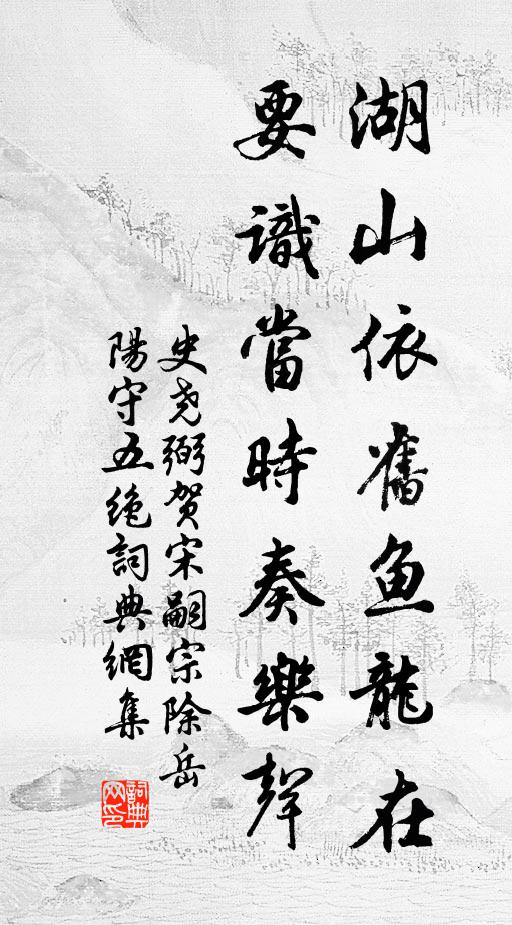 湖山依舊鱼龍在
要識當時奏樂聲
史尧弼贺宋嗣宗除岳
陽守五绝詞典網集
詞典
网印